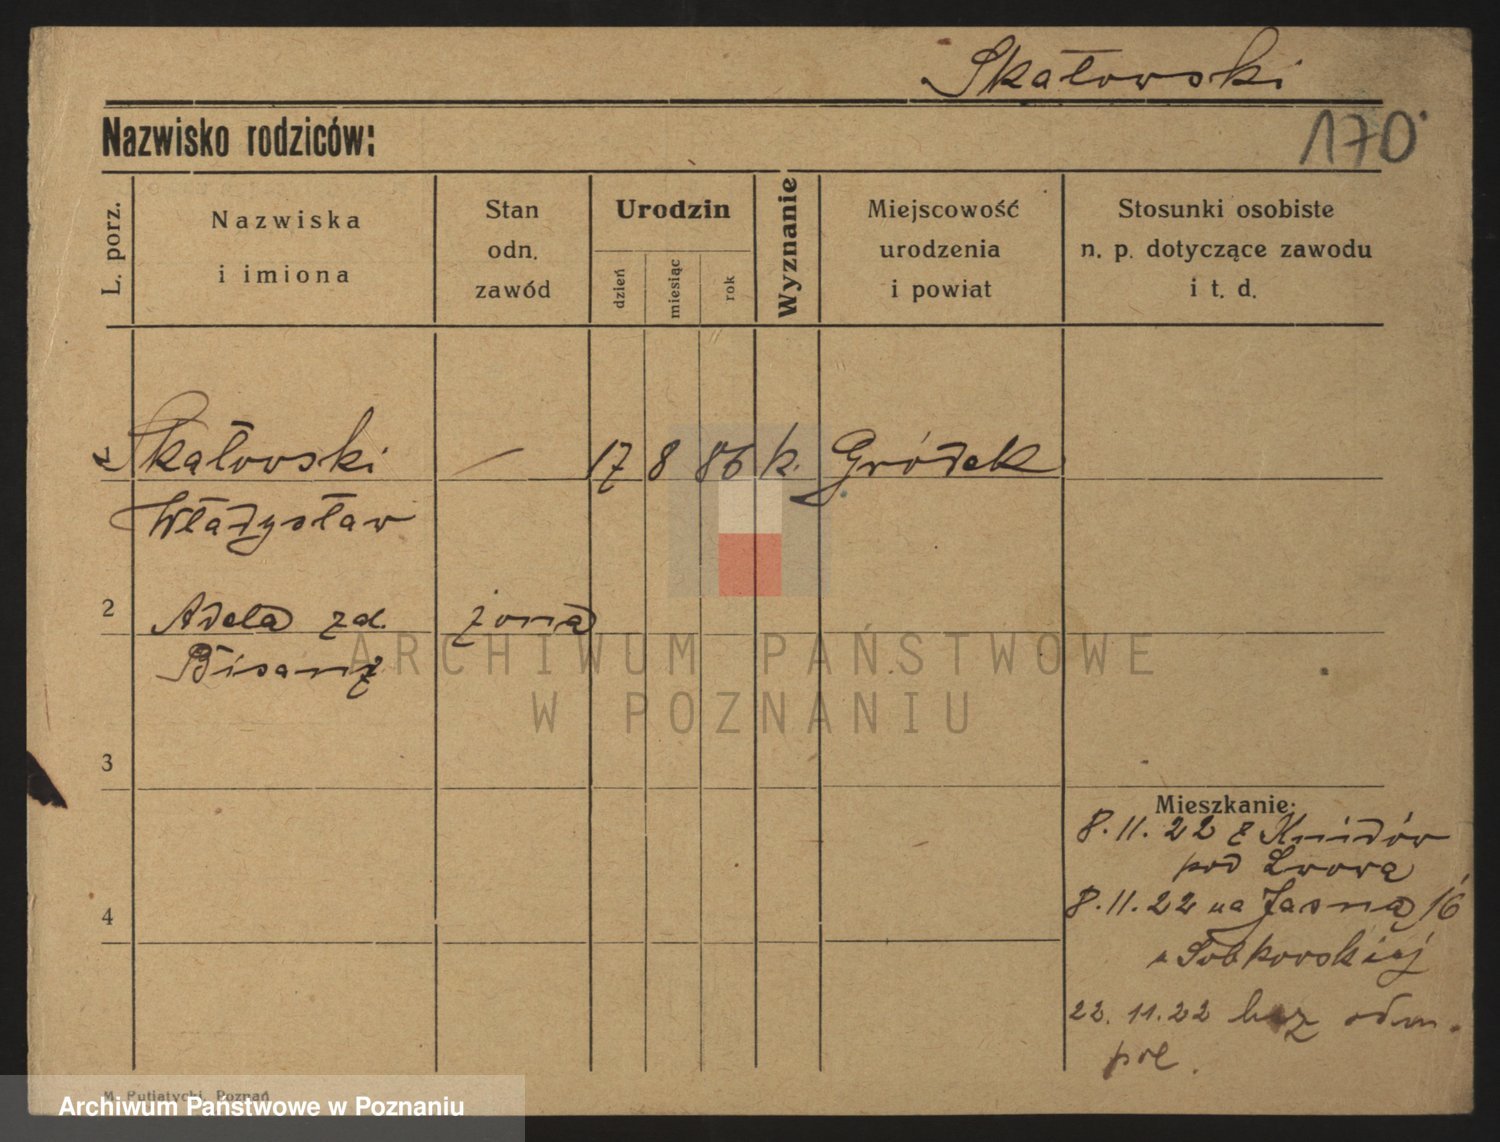 Skałowski
170
Nazwisko rodziców:
L. porz.
Nazwiska
i imiona
Stan
odn.
zawód
Urodzin
dzień
miesiąc
rok
Wyznanie
Miejscowość
urodzenia
i powiat
Stosunki osobiste
n. p. dotyczące zawodu
i t. d.
1 Skałowski — 17 8 86 k. Gródek
Władysław
2 Adela zd. żona
Bisanz
3
Mieszkanie:
8.11.22 z
pod Lwowa
8.11.22 na Jasną 16
Sobkowskiej
4
22.11.22 bez odm.
pol.
M. Putiatycki, Poznań
ARCHIWUM PAŃSTWOWE
W POZNANIU
Archiwum Państwowe w Poznaniu